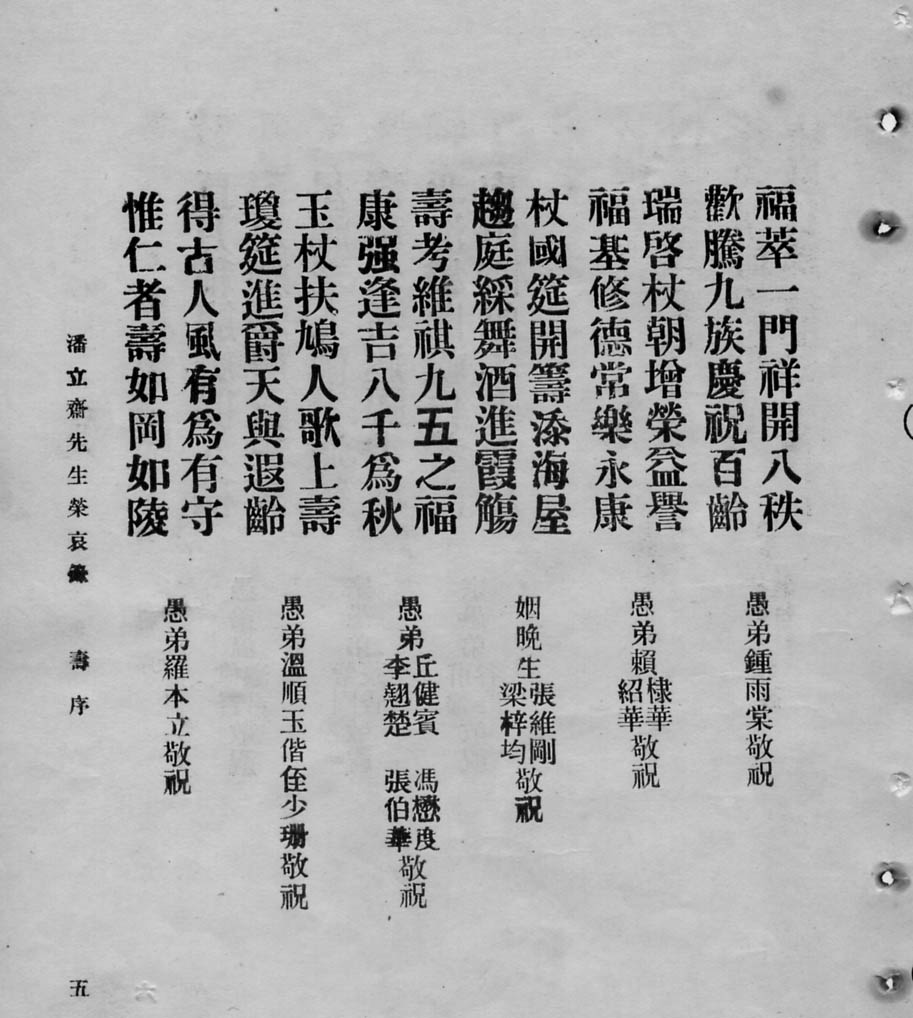 福萃一門祥開八秩
歡騰九族慶祝百齡
愚弟鍾雨棠敬祝
瑞啓杖朝增榮益譽
福基修德常樂永康
愚弟賴棣華紹華敬祝
杖國筵開籌添海屋
趨庭綵舞酒進霞觴
姻晚生張維剛梁梓均敬祝
壽考維祺九五之福
康强逢吉八千爲秋
愚弟丘健賓李翹楚馮懋度張伯華敬祝
玉杖扶鳩人歌上壽
瓊筵進爵天與遐齡
愚弟溫順玉偕侄少珊敬祝
得古人風有爲有守
惟仁者壽如岡如陵
愚弟羅本立敬祝
潘立齋先生榮哀錄 壽序
五